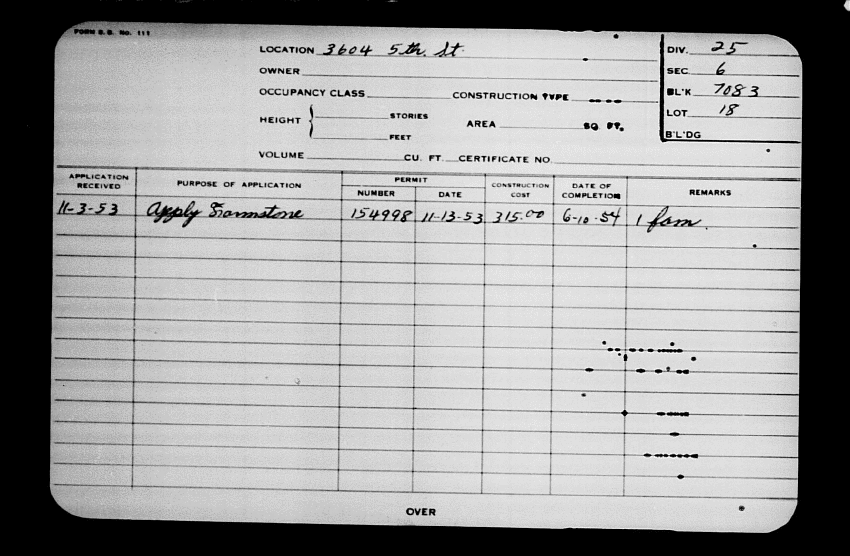 FORM B.B. No. 111
LOCATION 3604 5th. St.
OWNER
OCCUPANCY CLASS CONSTRUCTION TYPE
HEIGHT STORIES
FEET
AREA SQ. FT.
VOLUME CU. FT. CERTIFICATE NO.
DIV. 25
SEC 6
BL'K 7083
LOT 18
B'L'DG
APPLICATION RECEIVED PURPOSE OF APPLICATION PERMIT NUMBER DATE CONSTRUCTION COST DATE OF COMPLETION REMARKS
11-3-53 Apply Formstone 154998 11-13-53 315.00 6-10-54 1 fam.
OVER